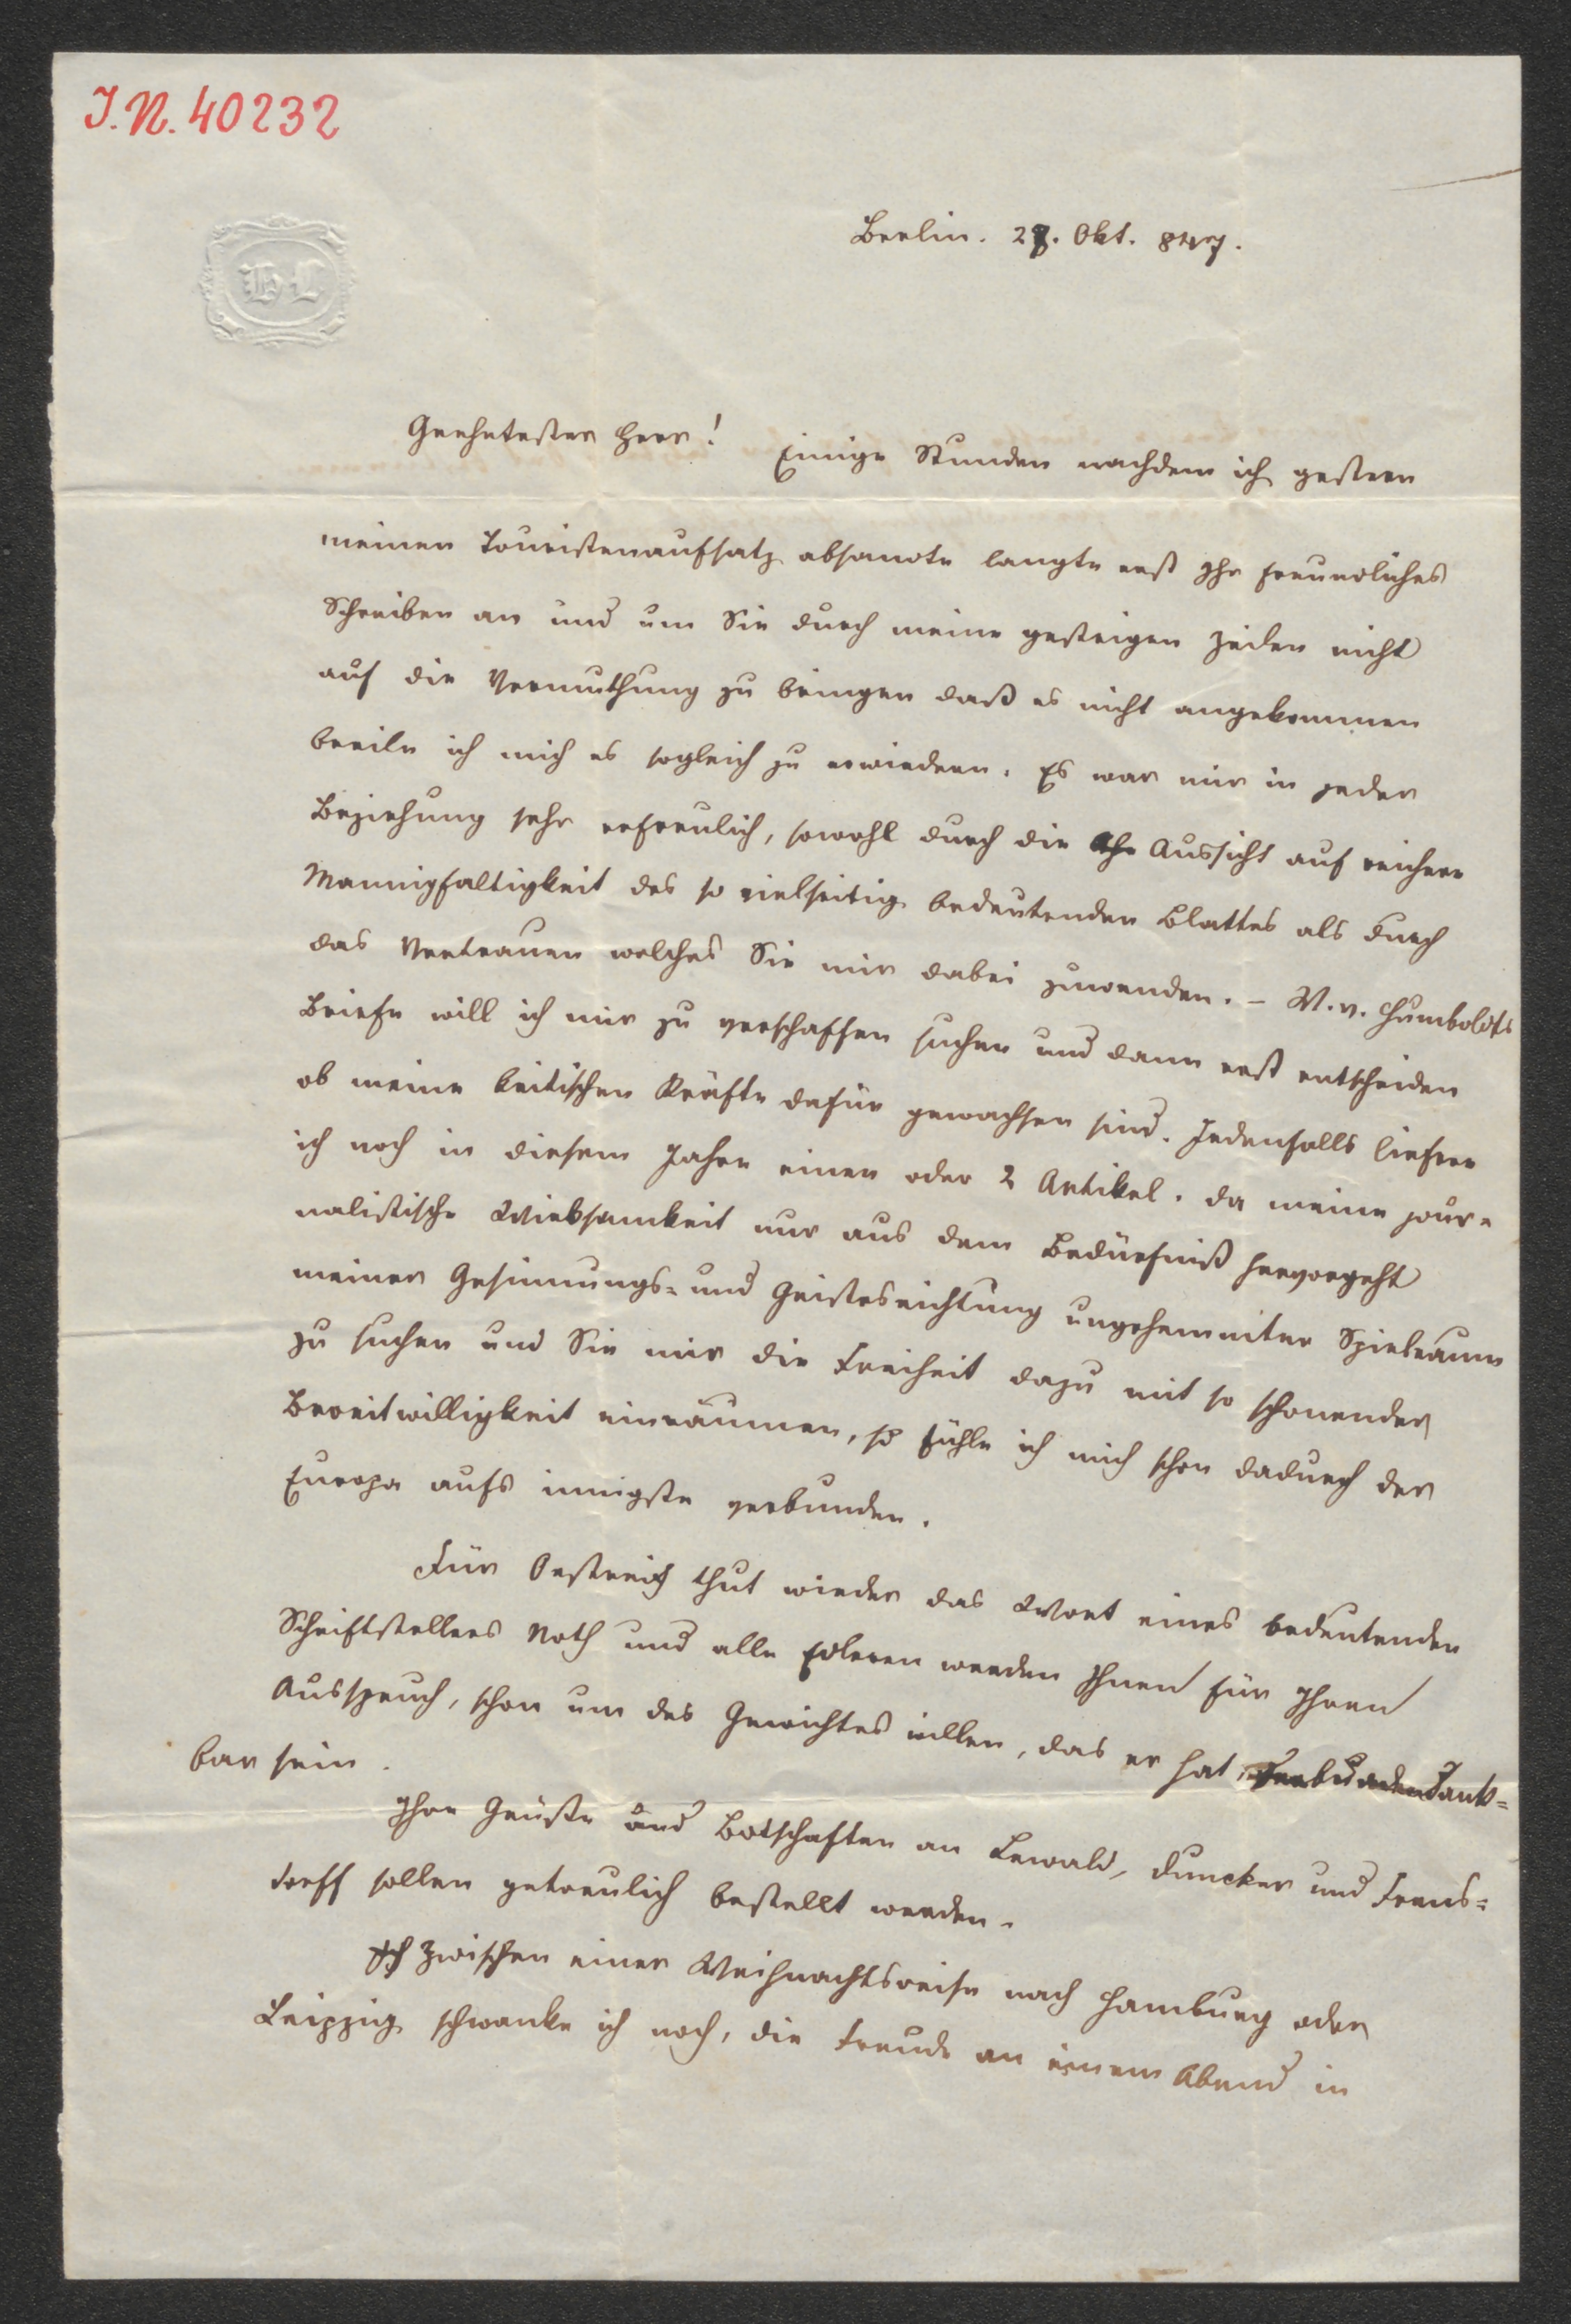 J. N. 40232
HL
Berlin. 28. Okt. 847.
Geehrtester Herr! Einige Stunden nachdem ich gestern
meinen Touristenaufsatz absandte langte erst Ihr freundliches
Schreiben an und um Sie durch meine gestrigen Zeilen nicht
auf die Vermuthung zu bringen daß es nicht angekommen
beeile ich mich es sogleich zu erwiedern. Es war mir in jeder
Beziehung sehr erfreulich, sowohl durch die Aussicht auf reichere
Mannigfaltigkeit des so vielseitig bedeutenden Blattes als durch
das Vertrauen welches Sie mir dabei zuwenden. – W. v. Humboldts
Briefe will ich mir zu verschaffen suchen und dann erst entscheiden
ob meine kritischen Kräfte dafür gewachsen sind. Jedenfalls liefere
ich noch in diesem Jahre einen oder 2 Artikel. Da meine jour=
nalistische Wirksamkeit nur aus dem Bedürfniß hervorgeht
meiner Gesinnungs= und Geistesrichtung ungehemmten Spielraum
zu suchen und Sie mir die Freiheit dazu mit so schonender
Bereitwilligkeit einräumen, so fühle ich mich schon dadurch der
Europa aufs innigste verbunden.
Für Oestreich thut wieder das Wort eines bedeutenden
Schriftstellers Noth und alle Edleren werden Ihnen für Ihren
Ausspruch, schon um des Gewichtes willen, das er hat, verbunden dank=
bar sein.
Ihre Grüße und Botschaften an Lewald, Duncker und Frens=
dorff sollen getreulich bestellt werden.
Zwischen einer Weihnachtsreise nach Hamburg oder
Leipzig schwanke ich noch, die Freude an einem Abend in